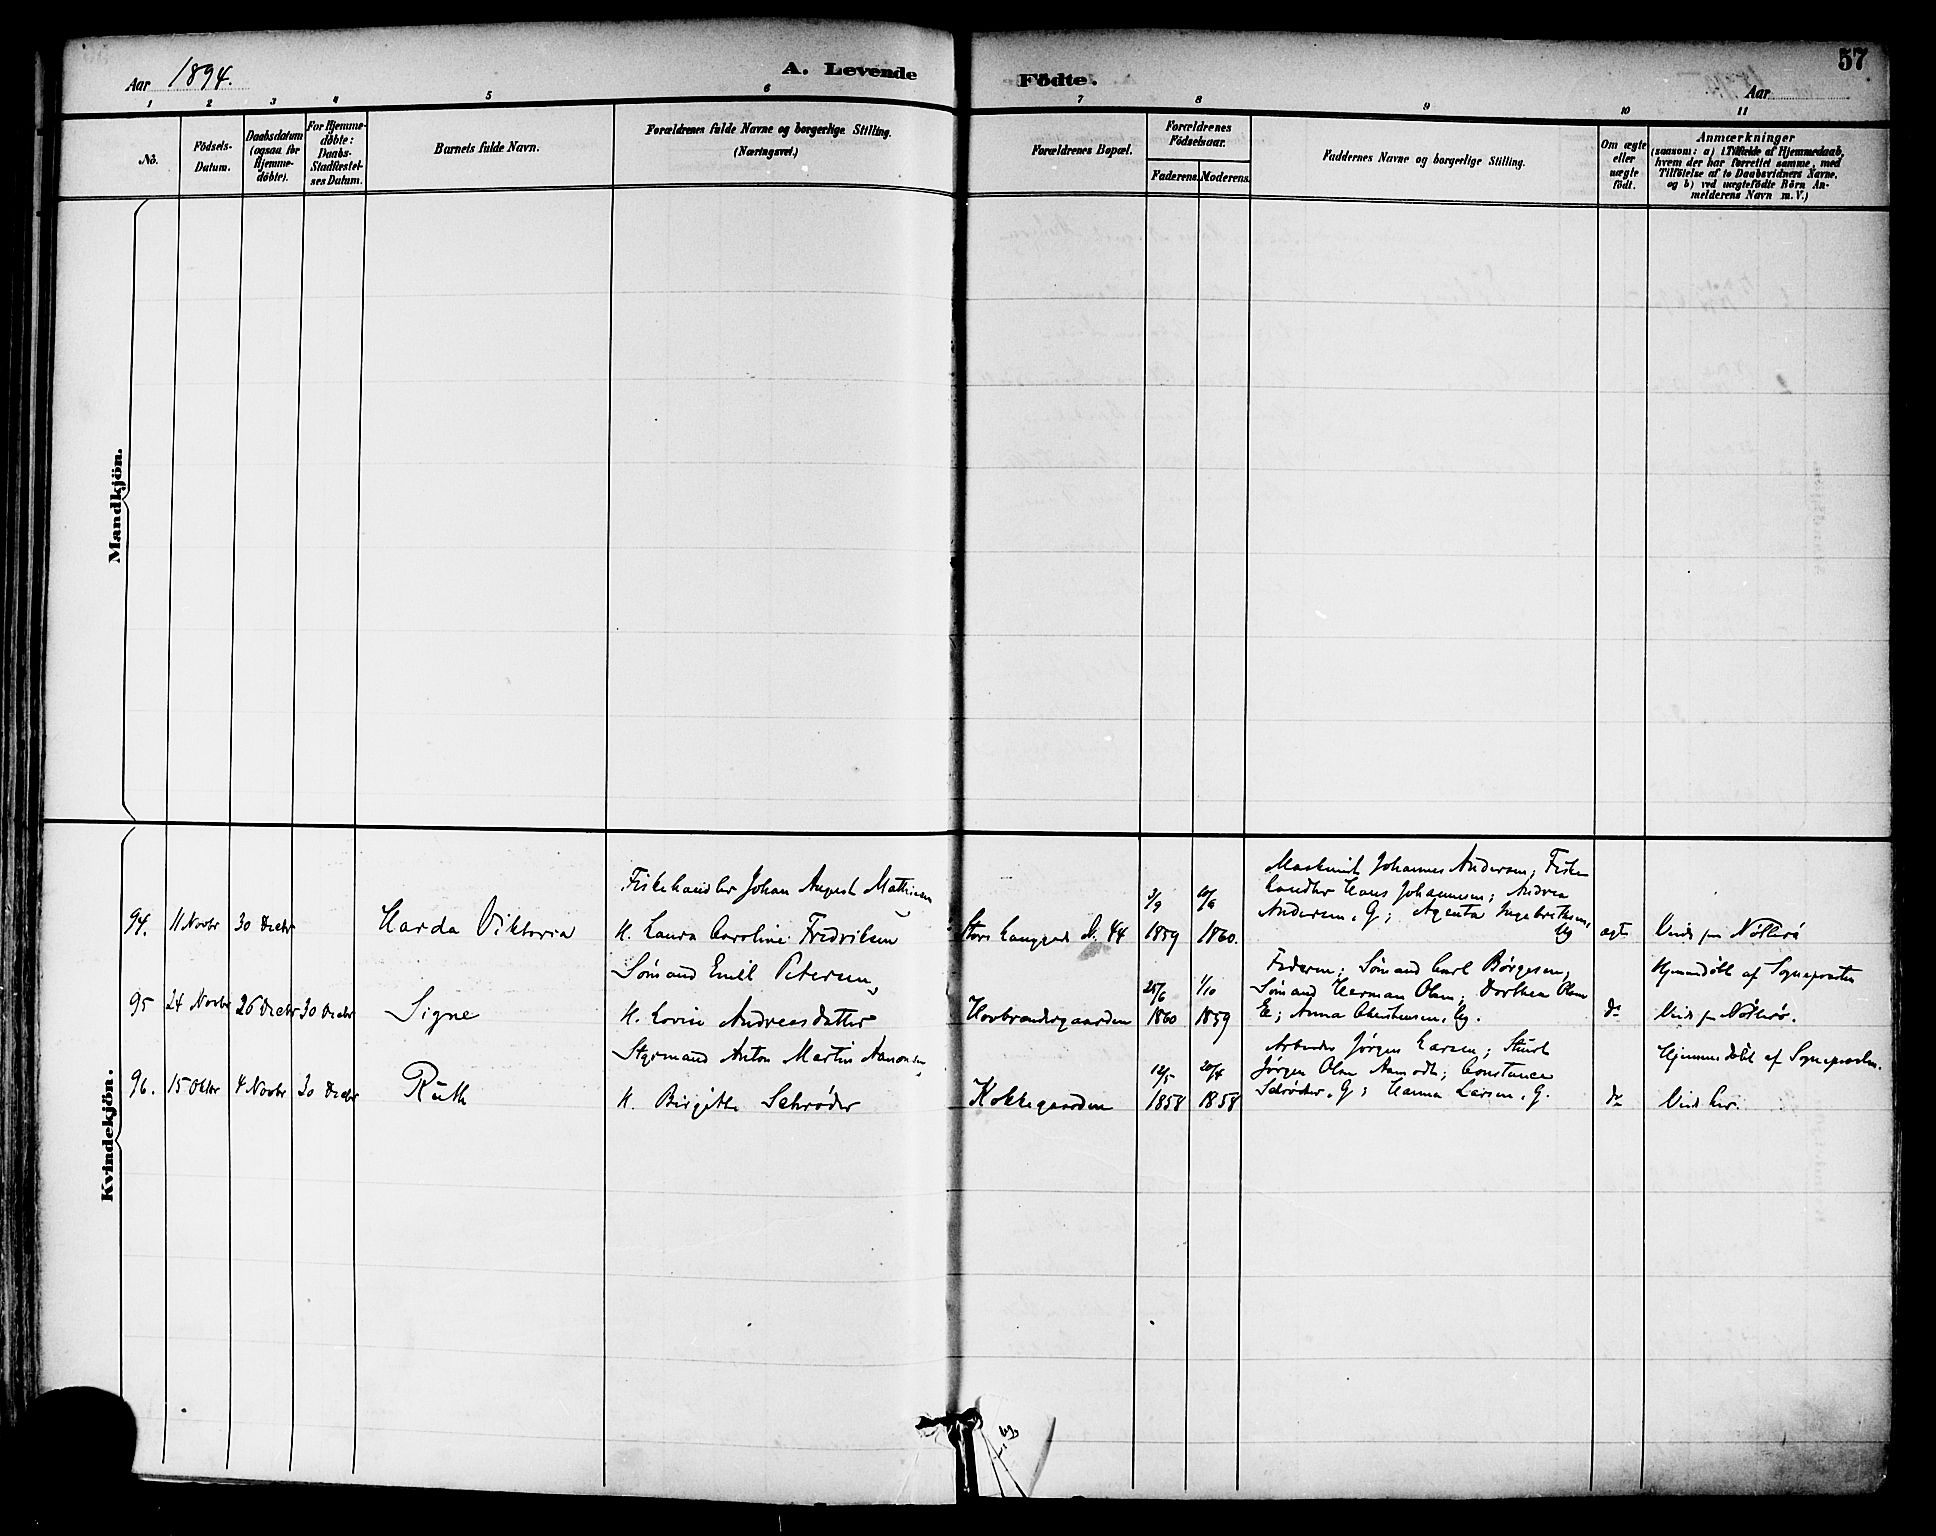 57
Aar 1894.
A. Levende Födte.
Aar
1 2 3 4 5 6 7 8 9 10 11
No.
Födsels-
Datum.
Daabsdatum
(ogsaa for
Hjemme-
döbte).
For Hjemme-
döbte:
Daabs-
Stadfæstel-
ses Datum.
Barnets fulde Navn.
Forældrenes fulde Navne og borgerlige Stilling.
(Næringsvei.)
Forældrenes Bopæl.
Forældrenes
Födselsaar.
Faderens. Moderens.
Faddernes Navne og borgerlige Stilling.
Om ægte
eller
uægte
födt.
Anmærkninger
(saasom: a) i Tilfælde af Hjemmedaab,
hvem der har forrettet samme, med
Tilföielse af to Daabsvidners Navne,
og b) ved uægtefödte Börn An-
melderens Navn m. V.)
Mandkjön.
Kvindekjön.
94. 11 Novbr 30 Decbr
Harda Viktoria
Fiskehandler Johan August Mathisen
H. Laura Caroline Fredriksen
Store Langgade N. 44
3/9
1859
10/6
1860.
Johannes Andersen; Fiske
handler Hans Johannesen; Andrea
Andersen, G; Agenta Ingebretsen,
Ug
ægte
Vind fra Nötterö
95 24 Novbr 26 Decbr 30 Decbr
Signe
Sömand Emil Petersen,
H. Lovise Andreasdatter
Hovbrandergaarden
25/6
1860
1/10
1859
Faderen; Sömand Carl Börgesen,
Sömand Herman Olsen; Dorthea Olsen
E; Anna Christensen, Ug.
do
Hjemmedöbt af Sognepresten
Vind fra Nötterö.
96. 15 Oktbr 4 Novbr 30 Decbr
Ruth
Styrmand Anton Martin Aanonsen,
H. Birgitte Schrøder
Kokkegaarden
12/5
1858
20/8
1858
Arbeider Jörgen Larsen; Stuert
Jörgen Olsen Aamodt; Constance
Schröder, G; Hanna Larsen, G.
do
Hjemmedöbt af Sognepresten.
Vind her.